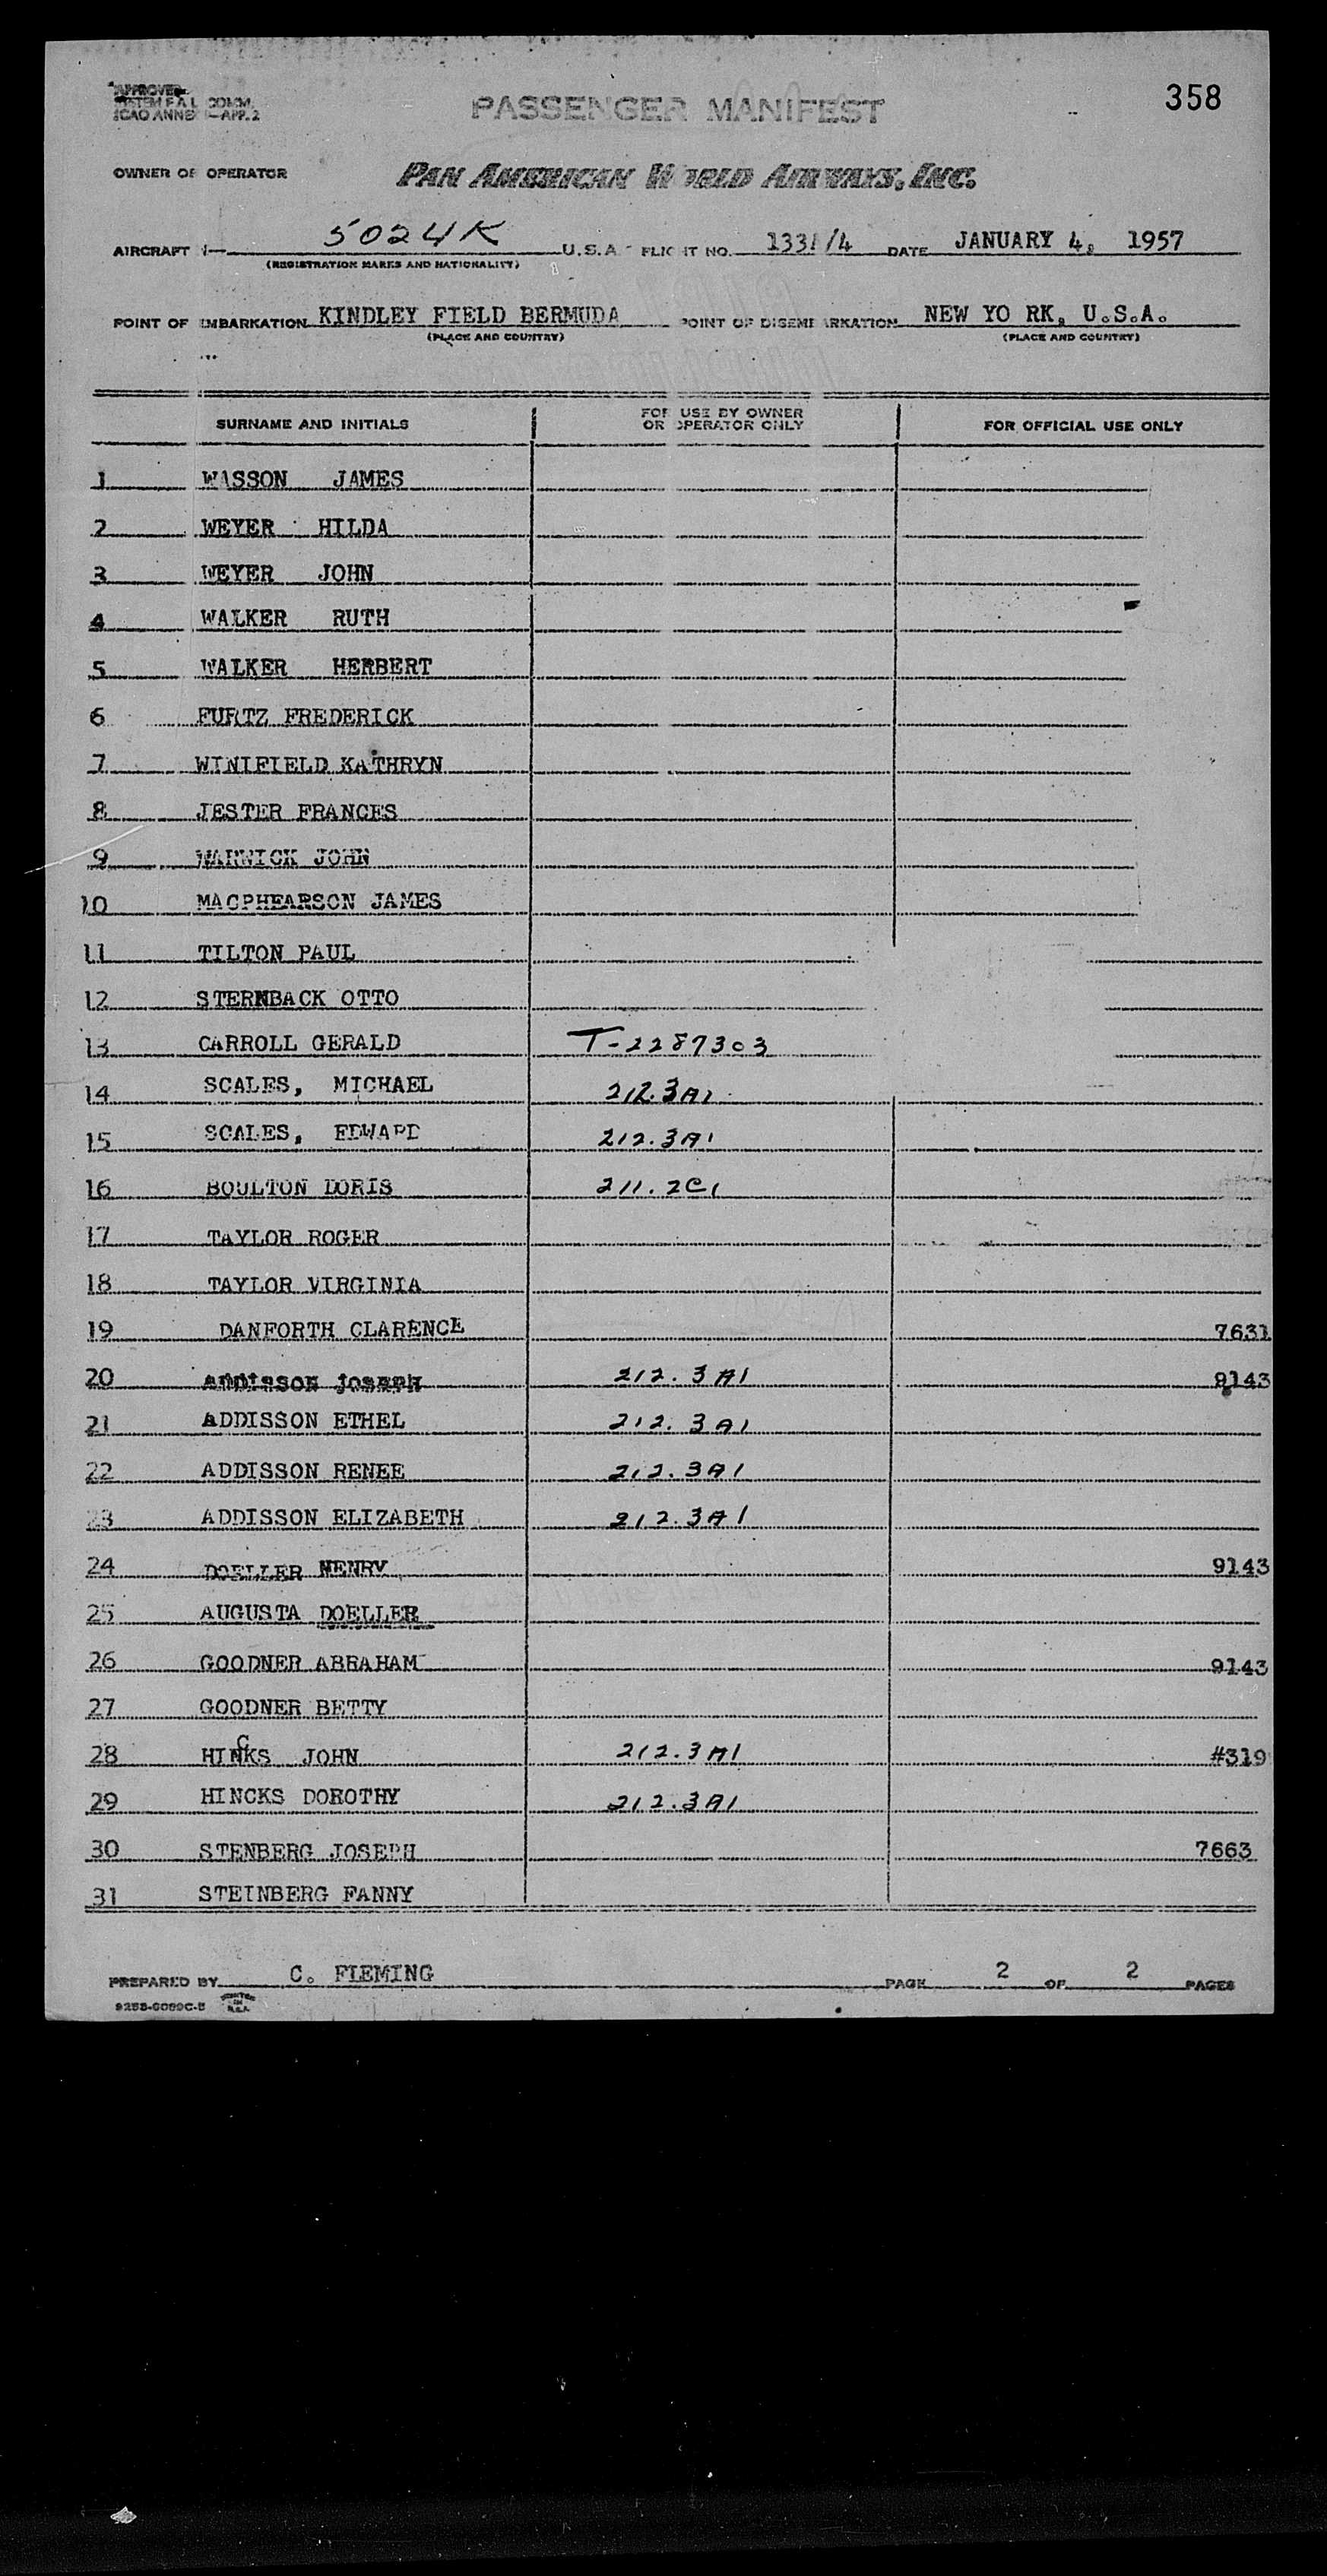 358
APPROVED
SYSTEM F.A.L. COMM.
ICAO ANNEX APP. 2
PASSENGER MANIFEST
OWNER OF OPERATOR PAN AMERICAN WORLD AIRWAYS, INC.
AIRCRAFT N— 5024K U.S.A. FLIGHT NO. 133 /4 DATE JANUARY 4, 1957
(REGISTRATION MARKS AND NATIONALITY)
POINT OF EMBARKATION KINDLEY FIELD BERMUDA POINT OF DISEMBARKATION NEW YO RK, U.S.A.
(PLACE AND COUNTRY) (PLACE AND COUNTRY)
SURNAME AND INITIALS FOR USE BY OWNER OR OPERATOR ONLY FOR OFFICIAL USE ONLY
1 WASSON JAMES
2 WEYER HILDA
3 WEYER JOHN
4 WALKER RUTH
5 WALKER HERBERT
6 FURTZ FREDERICK
7 WINIFIELD KATHRYN
8 JESTER FRANCES
9 WARWICK JOHN
10 MACPHEARSON JAMES
11 TILTON PAUL
12 STERNBACK OTTO
13 CARROLL GERALD T-2287303
14 SCALES, MICHAEL 212.3A1
15 SCALES, EDWARD 212.3A1
16 BOULTON DORIS 211.2C1
17 TAYLOR ROGER
18 TAYLOR VIRGINIA
19 DANFORTH CLARENCE 7631
20 ADDISSON JOSEPH 212.3A1 9143
21 ADDISSON ETHEL 212.3A1
22 ADDISSON RENEE 212.3A1
23 ADDISSON ELIZABETH 212.3A1
24 DOELLER HENRY 9143
25 AUGUSTA DOELLER
26 GOODNER ABRAHAM 9143
27 GOODNER BETTY
28 HINCKS JOHN 212.3A1 #319
29 HINCKS DOROTHY 212.3A1
30 STENBERG JOSEPH 7663
31 STEINBERG FANNY
PREPARED BY C. FLEMING PAGE 2 OF 2 PAGES
PRINTED IN U.S.A.